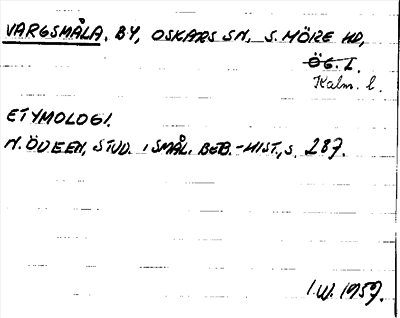 VARGSMÅLA. BY, OSKARS SN, S. MÖRE HD,
ÖG. L.
Kalm. l.
ETYMOLOGI.
N. ÖDEEN, STUD. I SMÅL. BEB.-HIST., S. 287.
I.W. 1959.